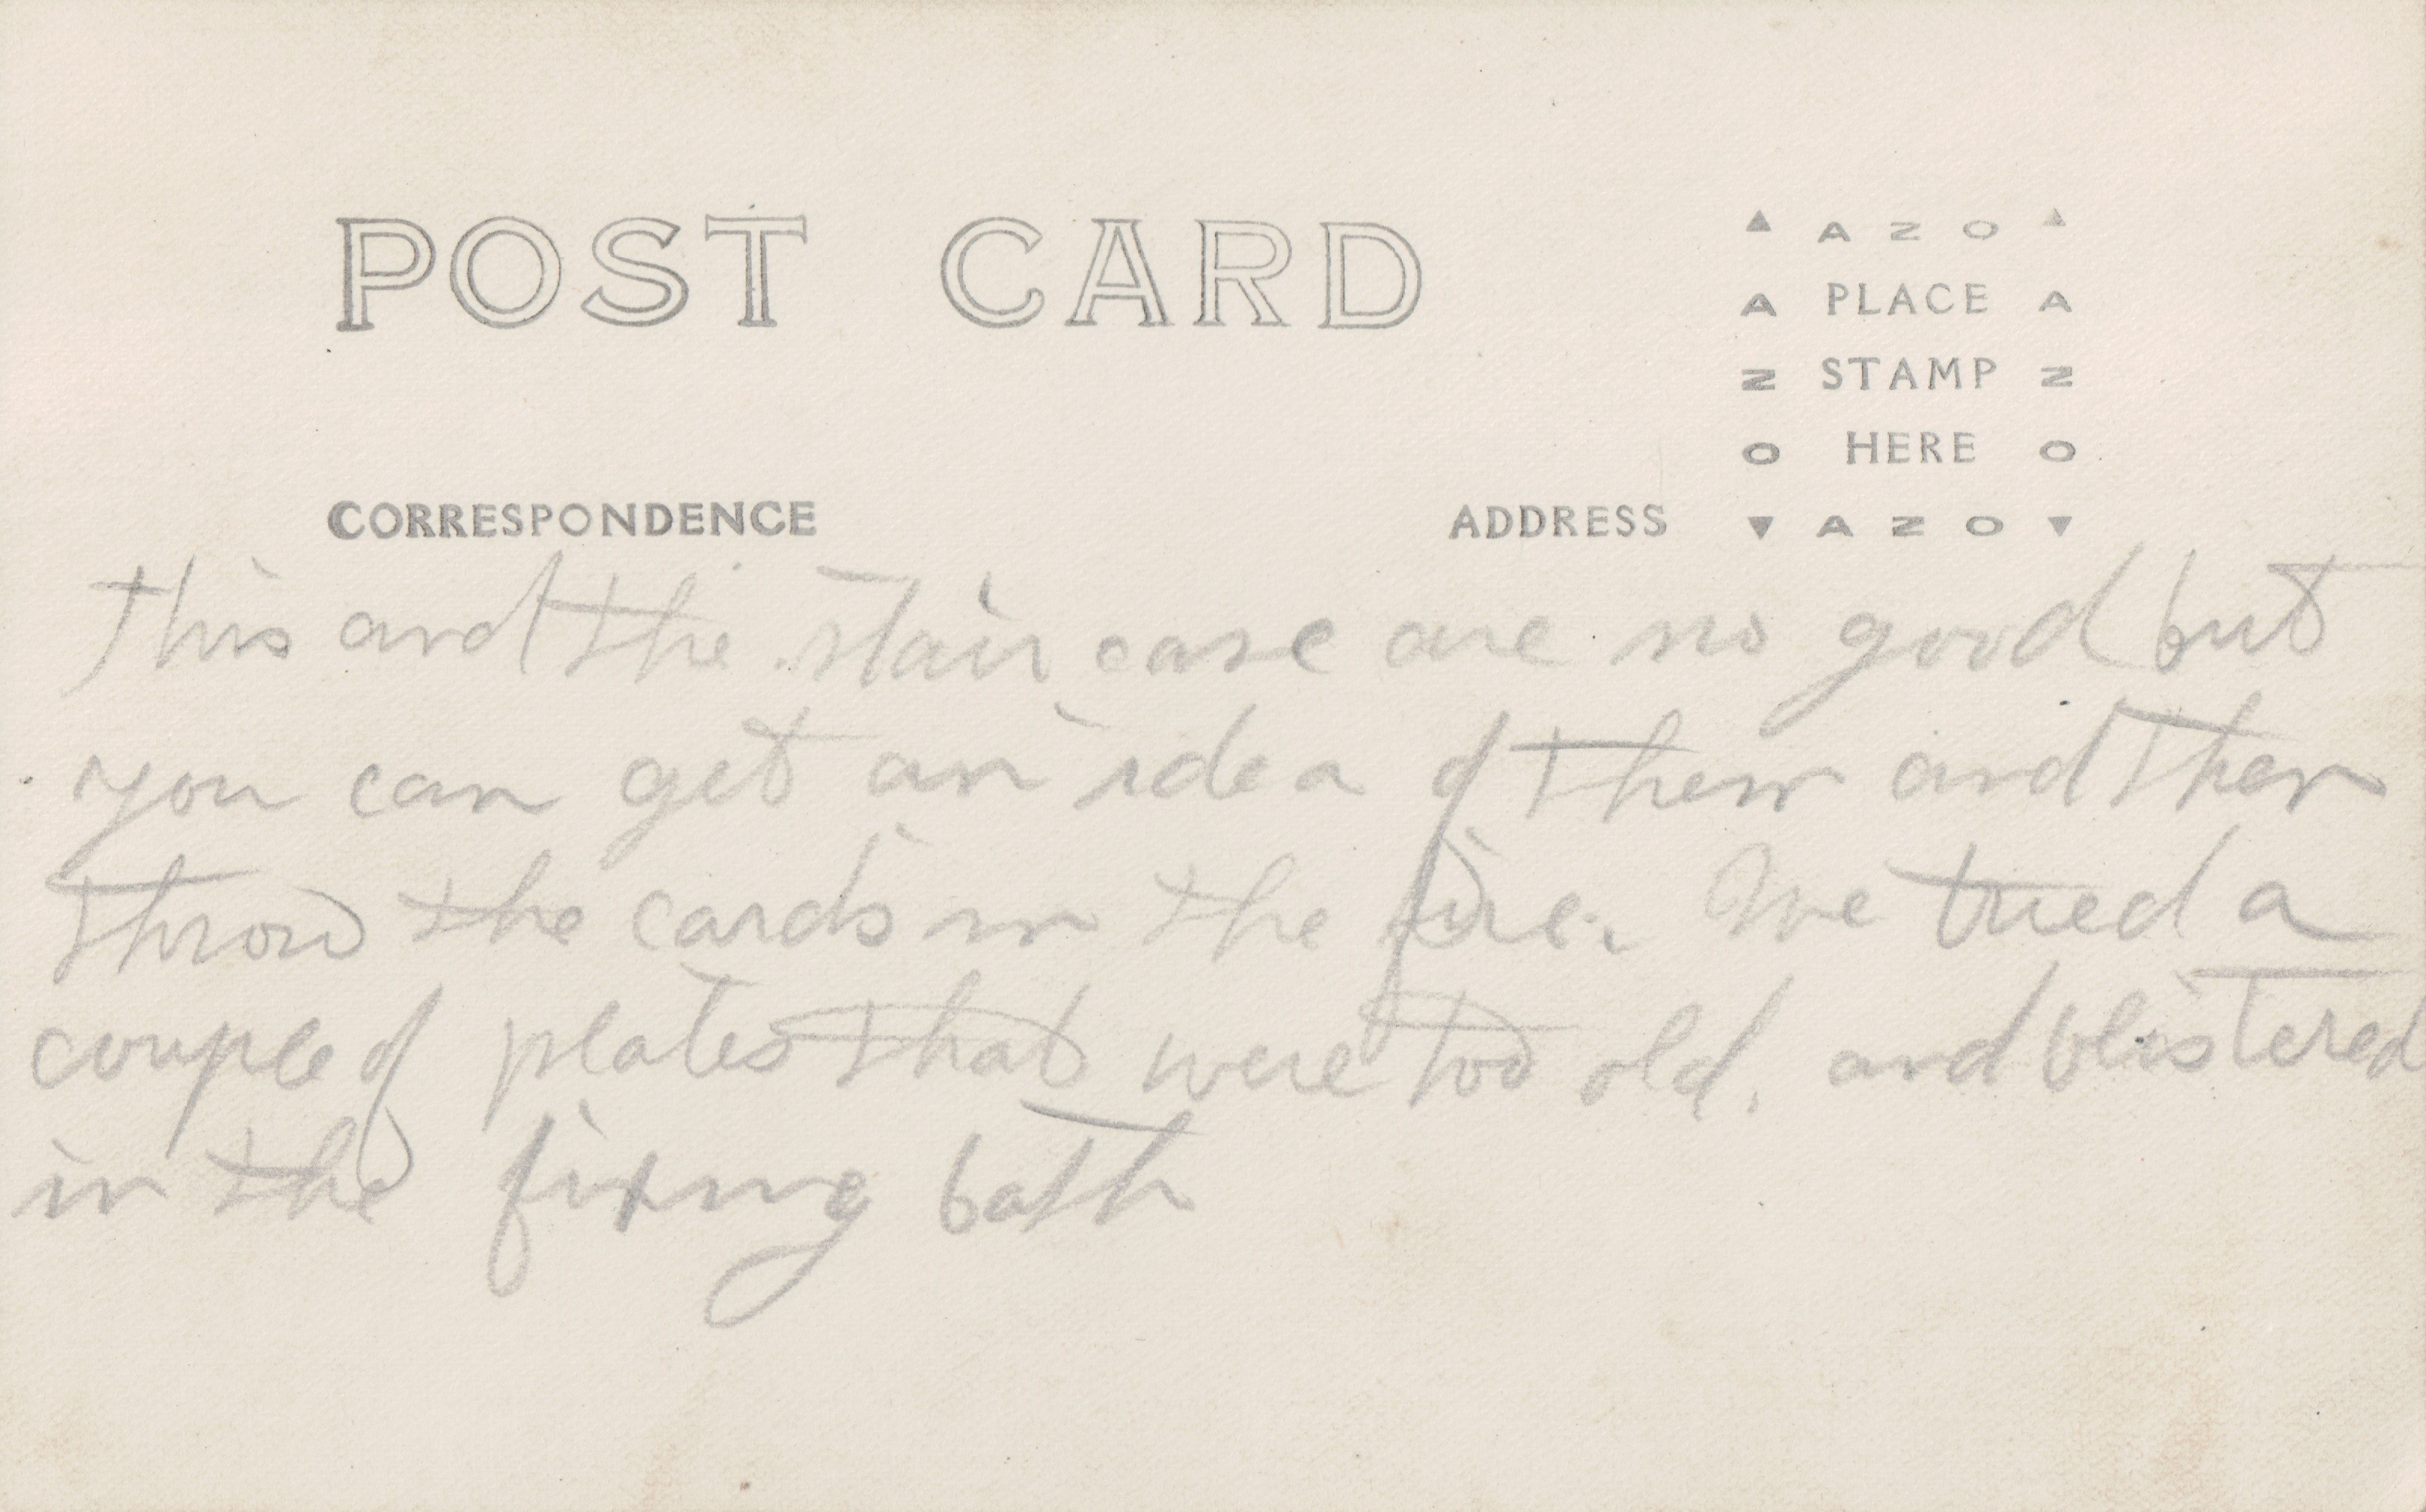 POST CARD
▲ A Z O ▲
A PLACE A
Z STAMP Z
O HERE O
▼ A Z O ▼
CORRESPONDENCE
ADDRESS
This and the stair case are no good but
you can get an idea of them and then
throw the cards in the fire. We tried a
couple of plates that were too old, and blistered
in the fixing bath